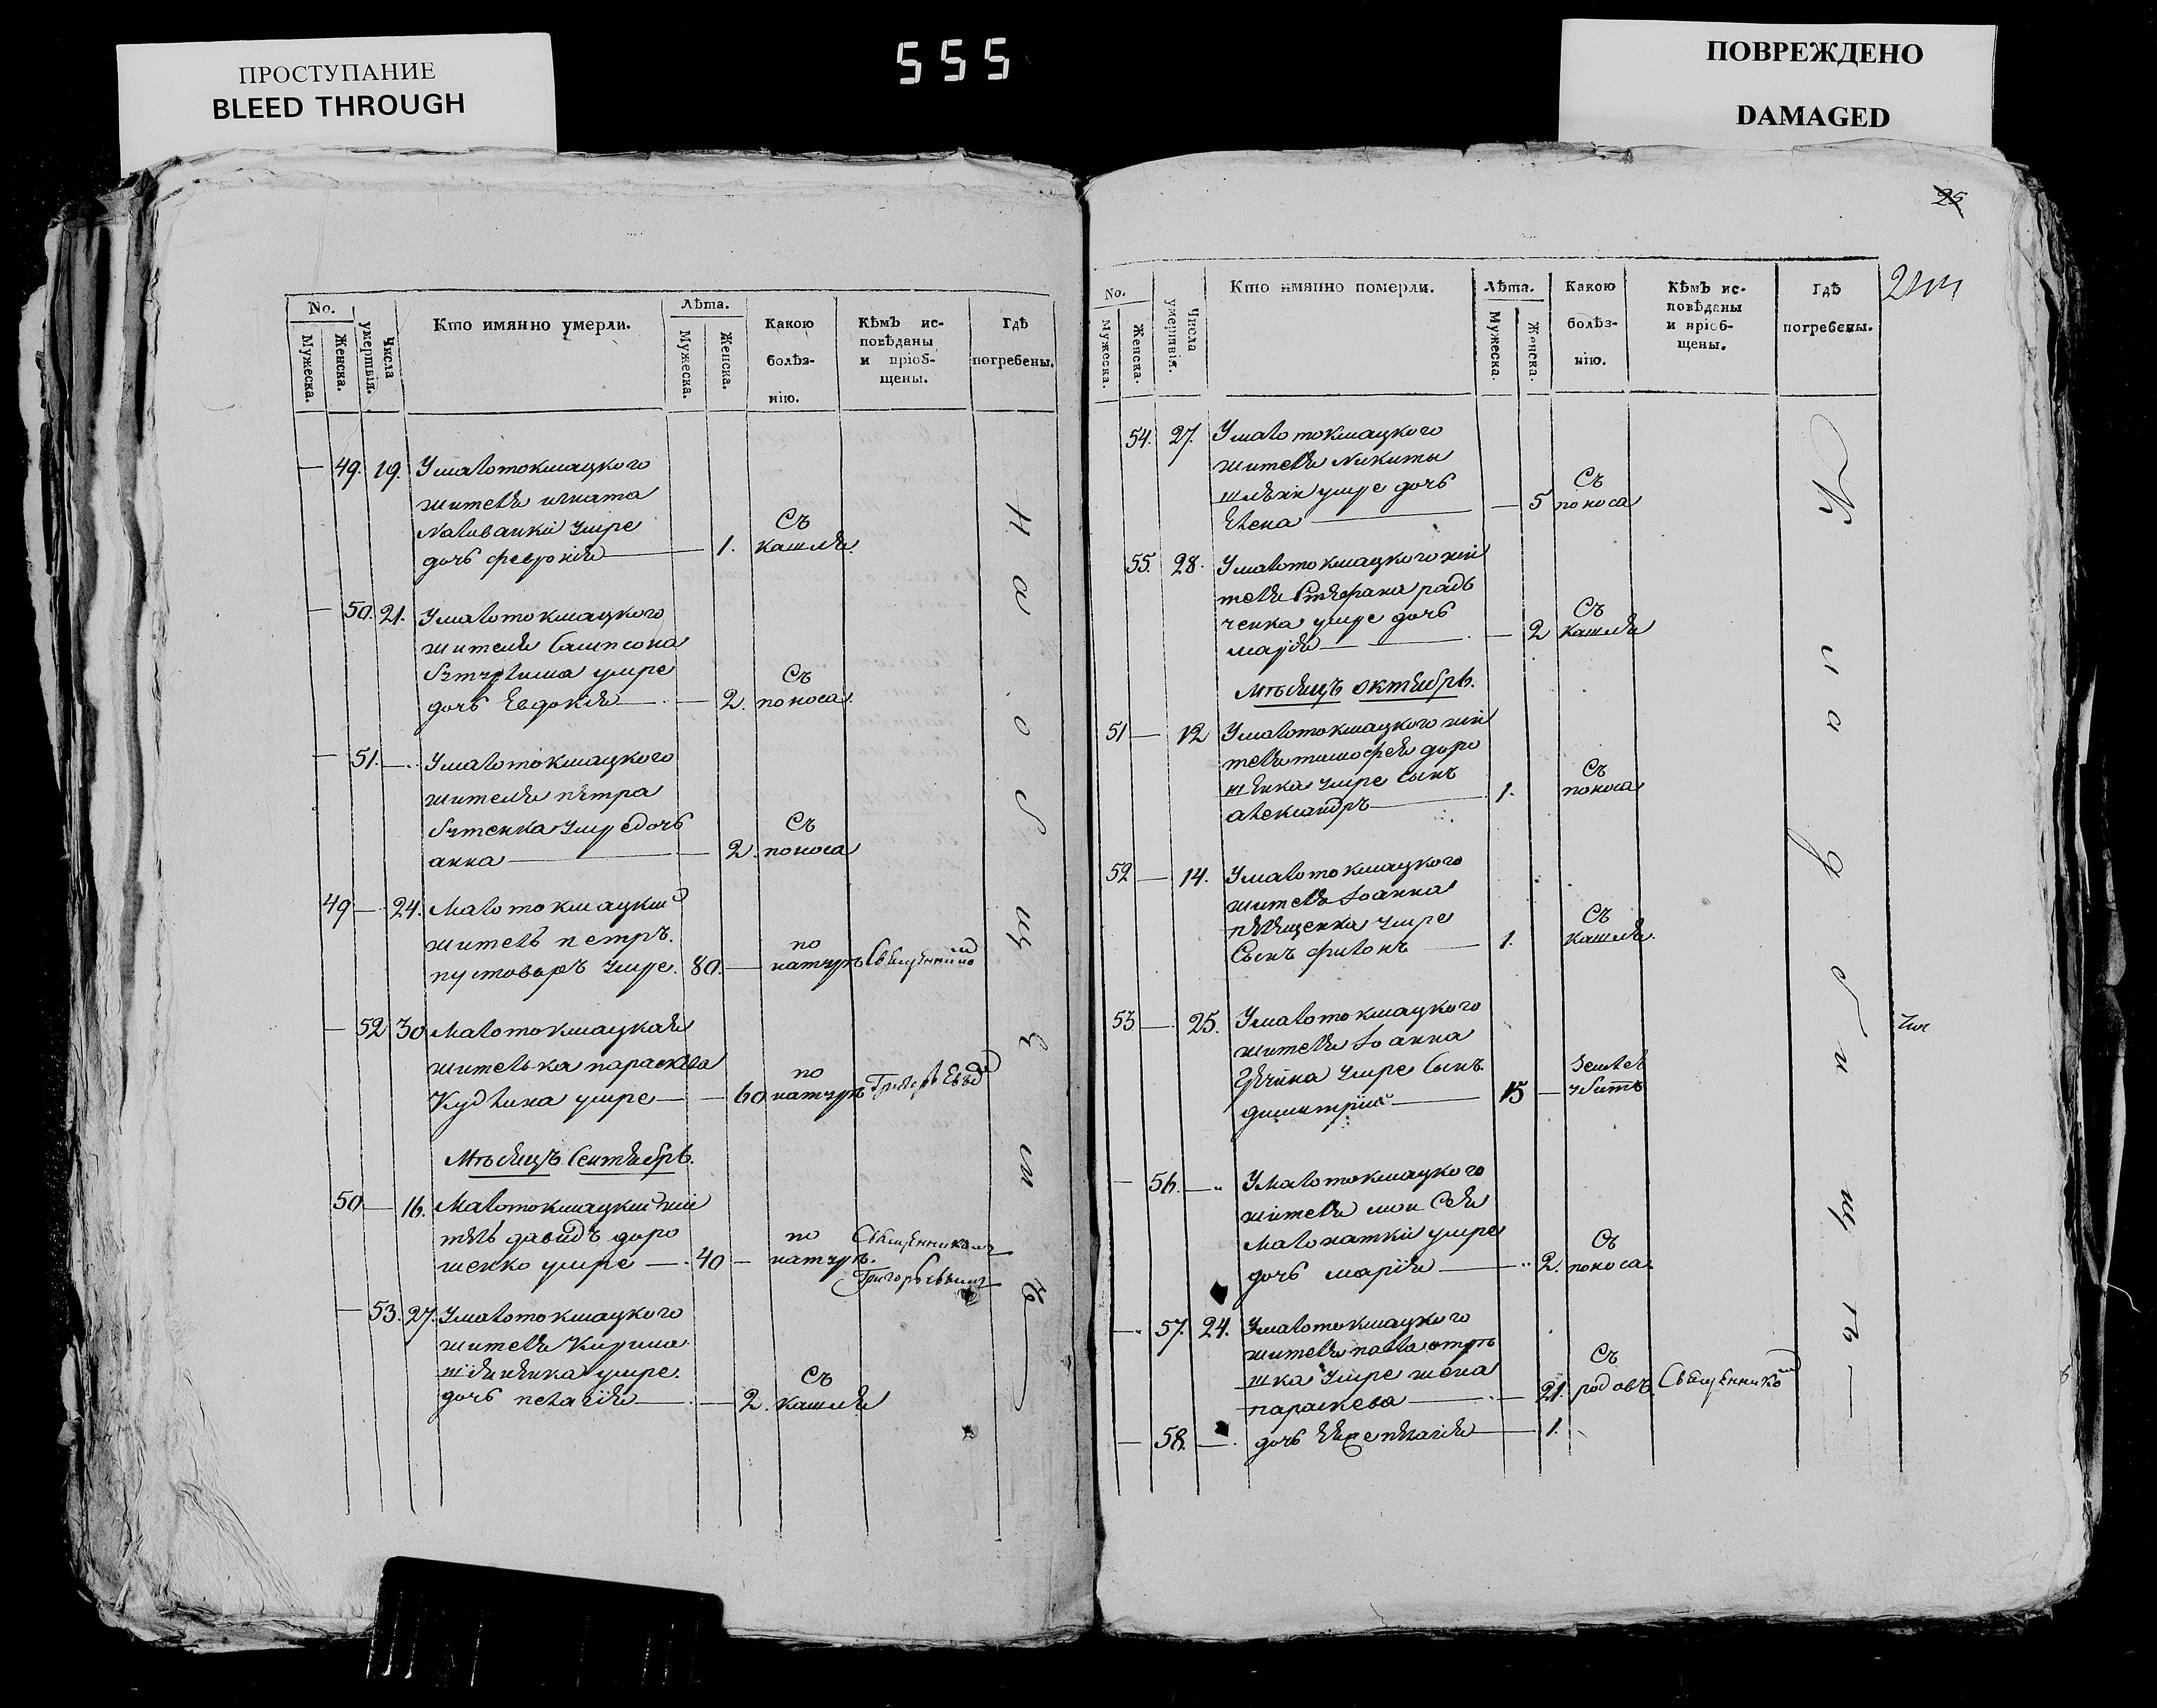 ПРОСТУПАНИЕ
BLEED THROUGH
555
ПОВРЕЖДЕНО
DAMAGED
No.
Мужеска.
Женска.
Числа умертвія.
Кто имянно умерли.
Лѣта.
Мужеска.
Женска.
Какою
болѣз-
нію.
Кѣмъ ис-
повѣданы
и пріоб-
щены.
Гдѣ
погребены.
— 49. 19. Умалотокмацкого
жителя игната
Наливайки умре
дочь феврония — 1. Съ кашля
— 50. 21. Умалотокмацкого
жителя Сампсона
умре
дочь Евдокия — 2. Съ поноса.
— 51. — Умалотокмацкого
жителя петра
умре дочь
анна — 2. Съ поноса
49 — 24. Малотокмацкий
житель петръ
пустоваръ умре. 80. — по натуре Священником
— 52 30 Малотокмацкая
жителька параскева
Кудлина умре — 60 по натуре
Мѣсяцъ Сентябрь.
50 — 16. Малотокмацкий жи
тель давидъ доро
шенко умре — 40 — по натуре. Священникомъ
Григорьевымъ
— 53. 27. Умалотокмацкого
жителя Кирила
умре.
дочь пелагия — 2. Съ кашля
На общем
25
No.
Мужеска.
Женска.
Числа умертвія.
Кто имянно померли.
Лѣта.
Мужеска.
Женска.
Какою
болѣз-
нію.
Кѣмъ ис-
повѣданы
и пріоб-
щены.
Гдѣ
погребены.
54. 27. Умалотокмацкого
жителя Никиты
умре дочь
Елена — 5 Съ поноса
55. 28. Умалотокмацкого жи
теля Стефана радь
ченка умре дочь
мария — 2 Съ кашля
Мѣсяцъ октябрь.
51 — 12 Умалотокмацкого жи
теля тимофея доро
шенка умре сынъ
александръ — 1. Съ поноса
52 — 14. Умалотокмацкого
жителя Иоанна
умре
Сынъ филонъ — 1. Съ кашля.
53 — 25. Умалотокмацкого
жителя Иоанна
умре сынъ
димитрий — 15 — Землею убитъ
— 56. — Умалотокмацкого
жителя моисея
Малохатки умре
дочь мария — 2. Съ поноса.
— 57. 24. Умалотокмацкого
жителя павла
умре жена
параскева — 21. Съ родовъ. Священником
— 58. — дочь — 1.
кладбищѣ